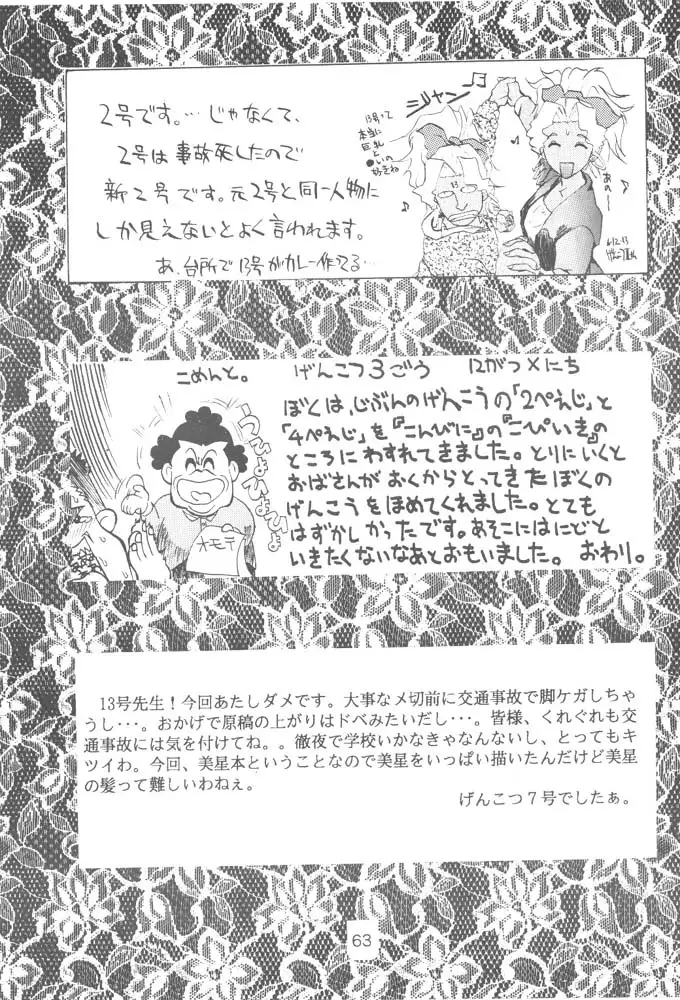 2号です。…じゃなくて、
2号は事故死したので
新2号です。元2号と同一人物に
しか見えないとよく言われます。
あ、台所で13号がカレー作ってる…
ジャン
13号って
本当に
巨乳と
●いの
好きね
あの〜
こめんと。 げんこつ3ごう 12がつ×にち
ぼくは、じぶんのげんこうの「2ぺえじ」と
「4ぺえじ」を『こんびに』の『こぴいき』の
ところにわすれてきました。とりにいくと
おばさんがおくからとってきたぼくの
げんこうをほめてくれました。とても
はずかしかったです。あそこにはにどと
いきたくないなあとおもいました。 おわり。
うひょひょひょひょ
オモテ
13号先生！今回あたしダメです。大事な〆切前に交通事故で脚ケガしちゃ
うし･･･。おかげで原稿の上がりはドベみたいだし･･･。皆様、くれぐれも交
通事故には気を付けてね。。徹夜で学校いかなきゃなんないし、とってもキ
ツイわ。今回、美星本ということなので美星をいっぱい描いたんだけど美星
の髪って難しいわねぇ。
げんこつ７号でしたぁ。
63